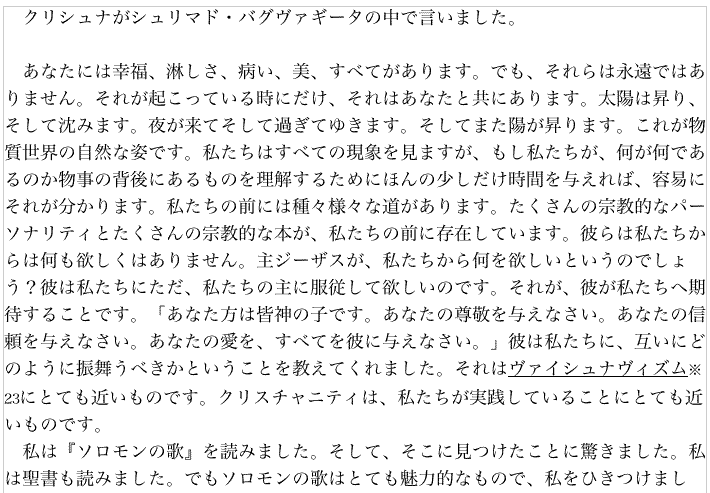 クリシュナがシュリマド・バグヴァギータの中で言いました。
あなたには幸福、淋しさ、病い、美、すべてがあります。でも、それらは永遠ではあ
りません。それが起こっている時にだけ、それはあなたと共にあります。太陽は昇り、
そして沈みます。夜が来てそして過ぎてゆきます。そしてまた陽が昇ります。これが物
質世界の自然な姿です。私たちはすべての現象を見ますが、もし私たちが、何が何であ
るのか物事の背後にあるものを理解するためにほんの少しだけ時間を与えれば、容易に
それが分かります。私たちの前には種々様々な道があります。たくさんの宗教的なパー
ソナリティとたくさんの宗教的な本が、私たちの前に存在しています。彼らは私たちか
らは何も欲しくはありません。主ジーザスが、私たちから何を欲しいというのでしょ
う？彼は私たちにただ、私たちの主に服従して欲しいのです。それが、彼が私たちへ期
待することです。「あなた方は皆神の子です。あなたの尊敬を与えなさい。あなたの信
頼を与えなさい。あなたの愛を、すべてを彼に与えなさい。」彼は私たちに、互いにど
のように振舞うべきかということを教えてくれました。それはヴァイシュナヴィズム※
23にとても近いものです。クリスチャニティは、私たちが実践していることにとても近
いものです。
私は『ソロモンの歌』を読みました。そして、そこに見つけたことに驚きました。私
は聖書も読みました。でもソロモンの歌はとても魅力的なもので、私をひきつけまし